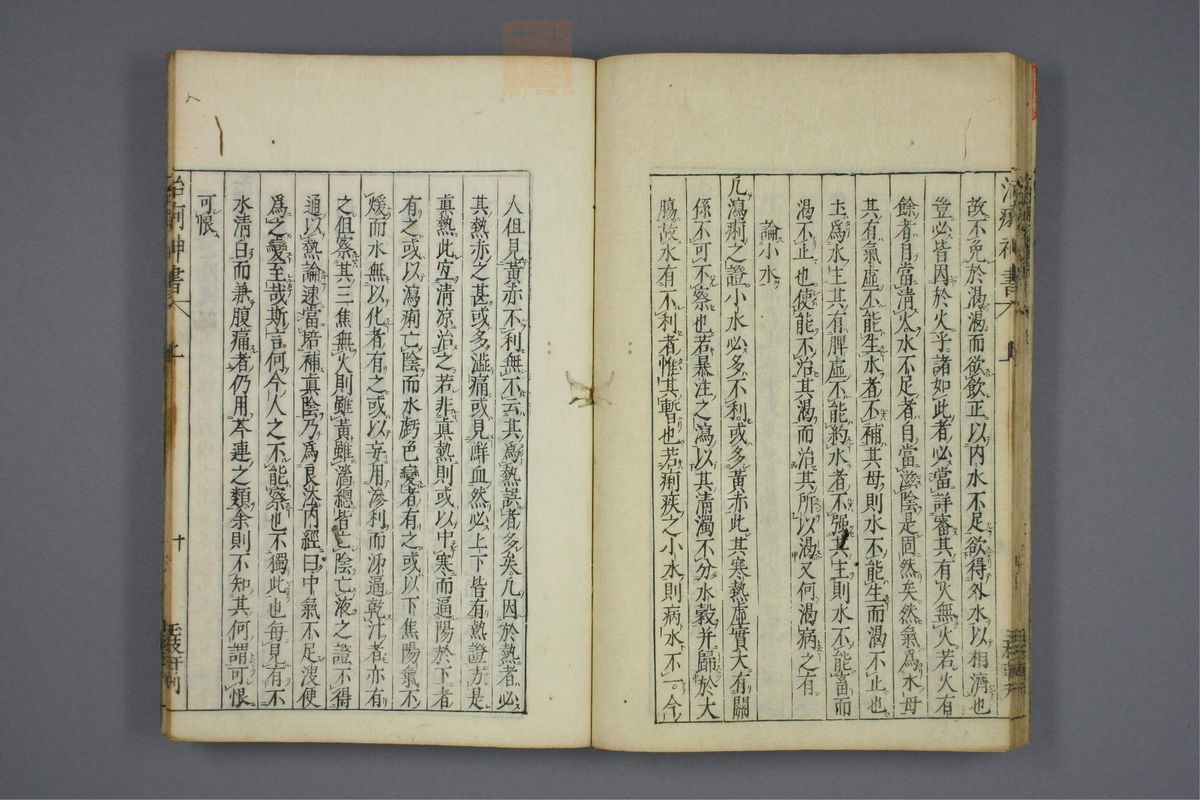 故不免於渴渴而欲飲正以內水不足欲得外水以相濟也
豈必皆因於火乎諸如此者必當詳審其有火無火若火有
餘者自當清火水不足者自當滋陰是固然矣然氣爲水母
其有氣虛不能生水者不補其母則水不能生而渴不止也
土爲水主其有脾虛不能約水者不强其主則水不能蓄而
渴不止也使能不治其渴而治其所以渴又何渴病之有
論小水
凡瀉痢之證小水必多不利或多黃赤此其寒熱虛實大有關
係不可不察也若暴注之瀉以其清濁不分水穀并歸於大
腸故水有不利者惟其暫也若痢疾之小水則病水不一今
人但見黃赤不利無不云其爲熱誤者多矣凡因於熱者必
其熱赤之甚或多澁痛或見鮮血然必上下皆有熱證方是
眞熱此宜清凉治之若非眞熱則或以中寒而逼陽於下者
有之或以瀉痢亡陰而水虧色變者有之或以下焦陽氣不
煖而水無以化者有之或以妄用滲利而逼乾汁者亦有
之但察其三焦無火則雖黃雖濇總皆亡陰亡液之證不得
通以熱論速當培補眞陰乃爲良法內經曰中氣不足溲便
爲之變至哉斯言何今人之不能察也不獨此也每見有不
水清白而兼腹痛者仍用芩連之類余則不知其何謂可恨
可恨
治痢神書
上
十